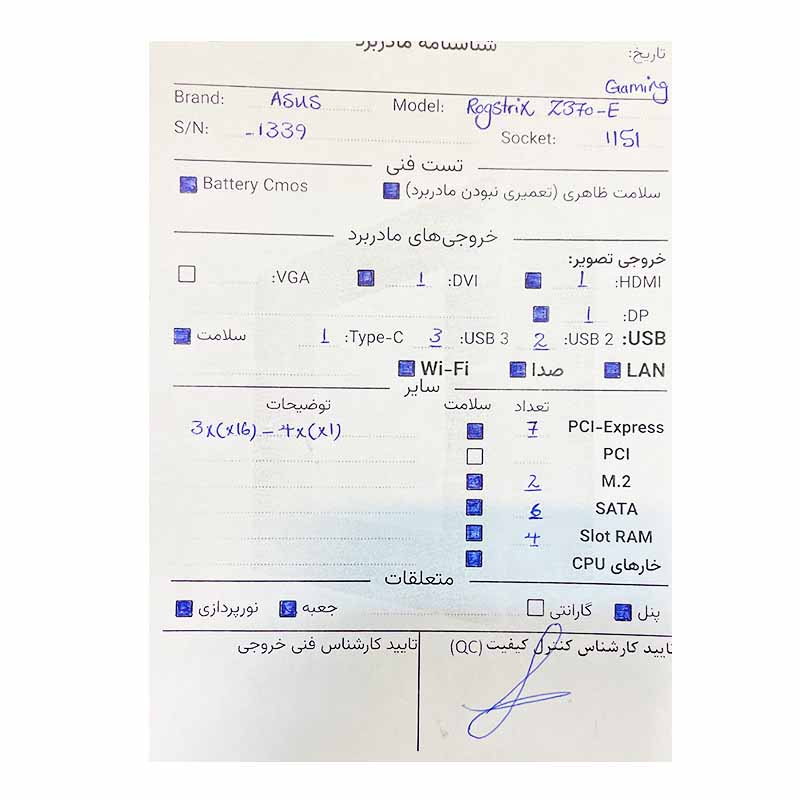 شناسنامه مادربرد
تاریخ:
Gaming
Brand: ASUS Model: Rogstrix Z370-E
S/N: -1339 Socket: 1151
تست فنی
سلامت ظاهری (تعمیری نبودن مادربرد) Battery Cmos
خروجی‌های مادربرد
خروجی تصویر:
HDMI: 1 DVI: 1 VGA:
DP: 1
USB: USB 2: 2 USB 3: 3 Type-C: 1 سلامت
LAN صدا Wi-Fi
سایر
تعداد سلامت توضیحات
PCI-Express 7 3x(x16) - 4x(x1)
PCI
M.2 2
SATA 6
Slot RAM 4
خارهای CPU
متعلقات
پنل گارانتی جعبه نورپردازی
تایید کارشناس کنترل کیفیت (QC) تایید کارشناس فنی خروجی